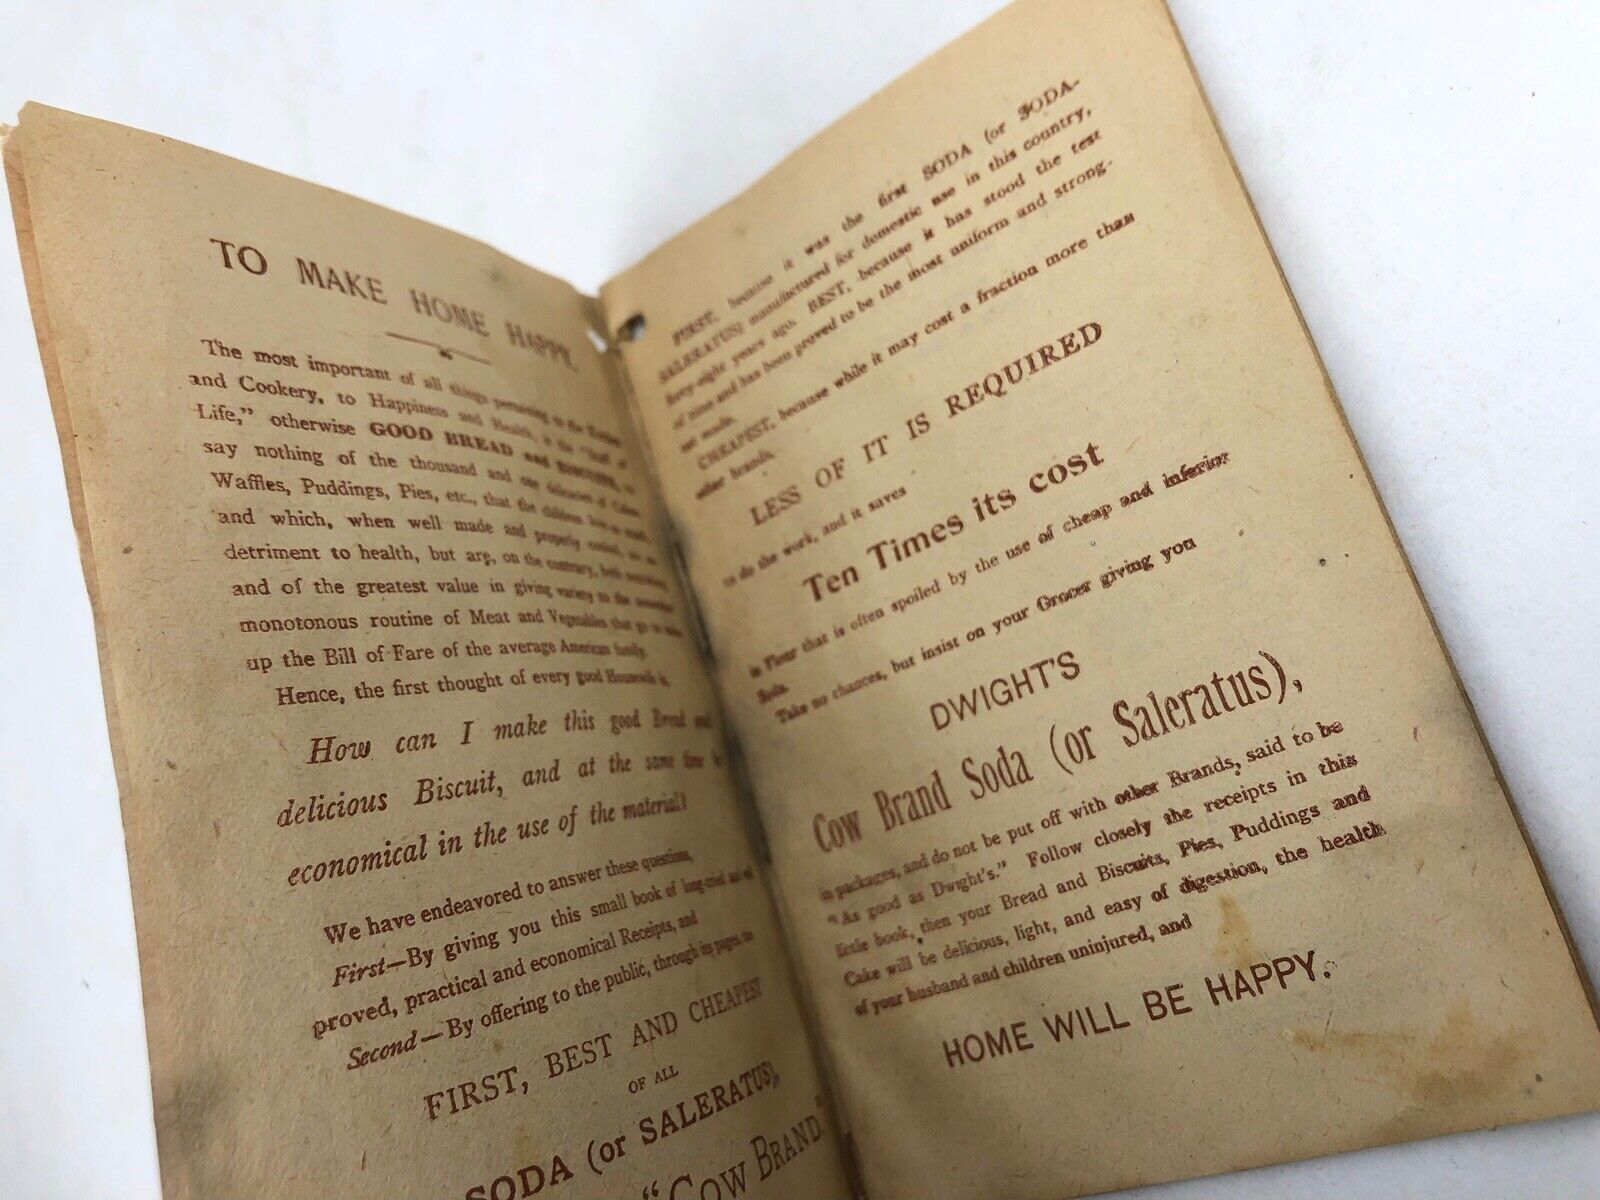 TO MAKE HOME HAPPY.
The most important of all things pertaining to the Kitchen
and Cookery, to Happiness and Health, is the "Staff of
Life," otherwise GOOD BREAD and BISCUITS, to
say nothing of the thousand and one delicacies of Cakes,
Waffles, Puddings, Pies, etc., that the children love so much,
and which, when well made and properly cooked, are no
detriment to health, but are, on the contrary, both nourishing
and of the greatest value in giving variety to the somewhat
monotonous routine of Meat and Vegetables that go to make
up the Bill of Fare of the average American family.
Hence, the first thought of every good Housewife is,
How can I make this good Bread and
delicious Biscuit, and at the same time be
economical in the use of the material?
We have endeavored to answer these question,
First—By giving you this small book of long-tried and well
proved, practical and economical Receipts, and
Second—By offering to the public, through its pages, the
FIRST, BEST AND CHEAPEST
OF ALL
SODA (or SALERATUS),
"COW BRAND"
FIRST, because it was the first SODA (or SODA-
SALERATUS) manufactured for domestic use in this country,
forty-eight years ago. BEST, because it has stood the test
of time and has been proved to be the most uniform and strong-
est made.
CHEAPEST, because while it may cost a fraction more than
other brands,
LESS OF IT IS REQUIRED
to do the work, and it saves
Ten Times its cost
in Flour that is often spoiled by the use of cheap and inferior
Soda.
Take no chances, but insist on your Grocer giving you
DWIGHT'S
Cow Brand Soda (or Saleratus),
in packages, and do not be put off with other Brands, said to be
"As good as Dwight's." Follow closely the receipts in this
little book, then your Bread and Biscuits, Pies, Puddings and
Cake will be delicious, light, and easy of digestion, the health
of your husband and children uninjured, and
HOME WILL BE HAPPY.